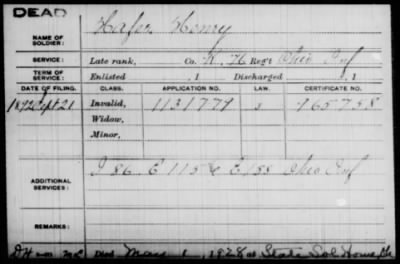 DEAD
NAME OF SOLDIER: Hafer Henry
SERVICE: Late rank, Co. K, 76 Reg't Ohio Inf
TERM OF SERVICE: Enlisted , 1 Discharged , 1
DATE OF FILING. CLASS. APPLICATION NO. LAW. CERTIFICATE NO.
1892 Sept 21 Invalid, 1131779 965758
Widow,
Minor,
ADDITIONAL SERVICES: I 86 E 115 & E 188 Ohio Inf
REMARKS:
Died May 1, 1928 at State Sol Home